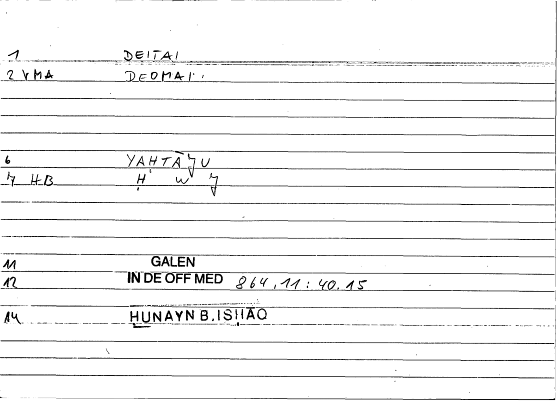 1 DEITAI
2 VMA DEOMAI
6 YAḤTĀǦU
7 HB Ḥ W Ǧ
11 GALEN
12 IN DE OFF MED 864,11:40.15
14 ḤUNAYN B. ISḤĀQ